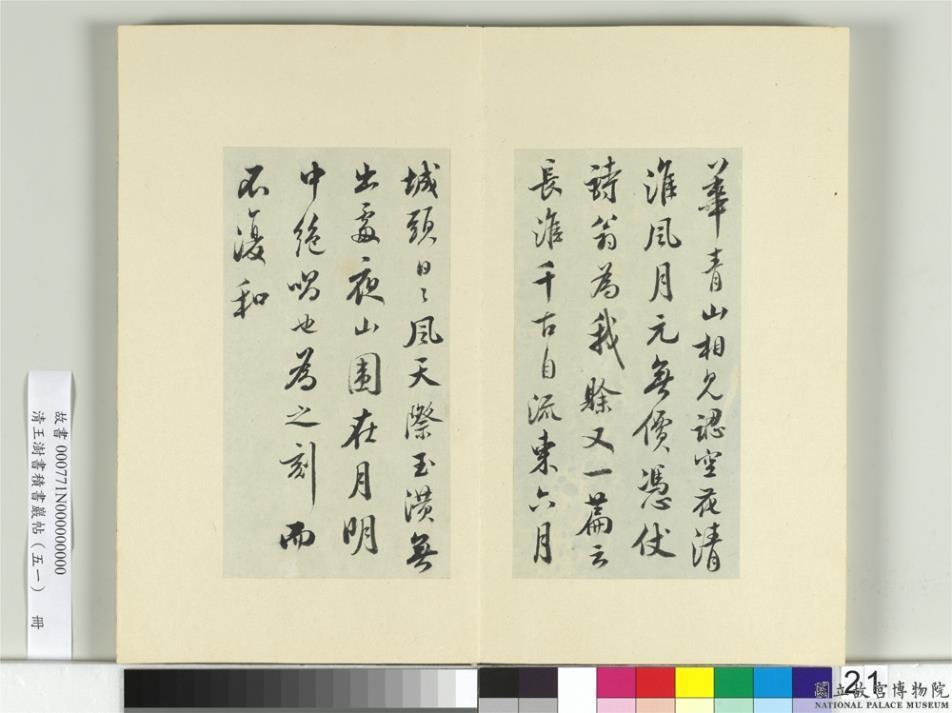 華青山相見認空花清
淮風月元無價憑仗
詩翁為我賒又一篇云
長淮千古自流東六月
城頭日〻風天際玉潢無
出處夜山圍在月明
中絶唱也為之刻而
不復和
故書000771N000000000
清王澍書積書巖帖（五一） 冊
21
國立故宮博物院
NATIONAL PALACE MUSEUM